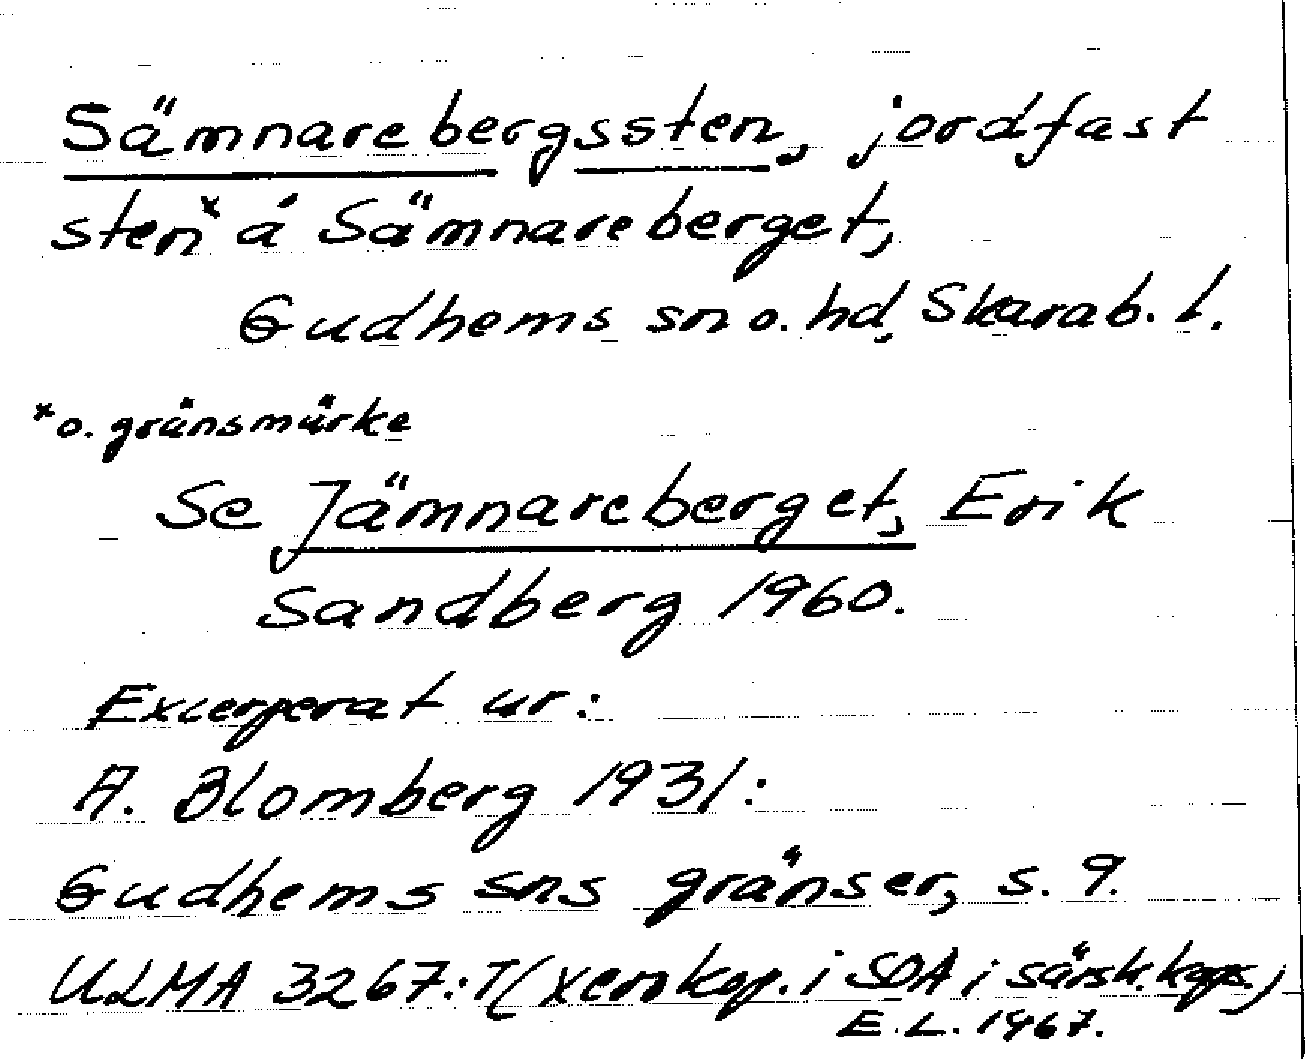 Sämnarebergssten, jordfast
sten* å Sämnareberget,
Gudhems sn o. hd, Skarab. l.
*o. gränsmärke
Se Jämnareberget, Erik
Sandberg 1960.
Excerperat ur:
A. Blomberg 1931:
Gudhems sns gränser, s. 9.
ULMA 3267:7 (xerokop. i SOA i särsk. kaps.)
E. L. 1967.